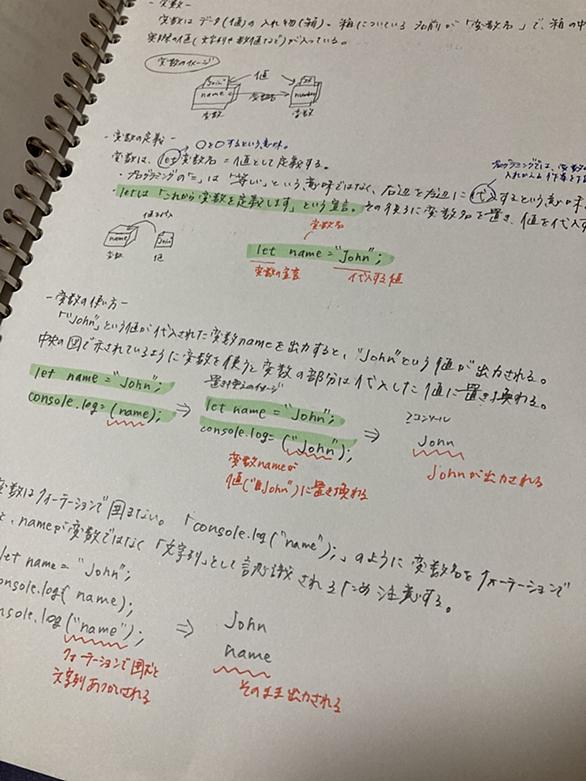 - 変数 -
変数はデータ(値)の入れ物(箱)。箱についている名前が「変数名」で、箱の中
実際の値(文字列や数値など)が入っている。
変数のイメージ
値
John
name
変数名
number
変数
変数
- 変数の定義 -
○と○するという意味。
変数は、let 変数名 = 値として定義する。
プログラミングでは、
・プログラミングの「=」は「等しい」という意味ではなく、右辺を左辺に代入するという意味。
・letは「これから変数を定義します」という宣言。その後ろに変数名を置き、値を代入す
値を代入
name
John
変数
値
変数名
let name = "John";
変数の宣言
代入する値
- 変数の使い方 -
「"John"」という値が代入された変数nameを出力すると、"John"という値が出力される。
中央の図で示されているように変数を使うと変数の部分は代入した値に置き換わる。
置き換えのイメージ
let name = "John"; ⇒ let name = "John"; ⇒ >コンソール
console.log=(name); console.log=("John"); John
変数nameが
値("John")に置き換わる
Johnが出力される
変数はクォーテーションで囲まない。「console.log("name");」のように変数名をクォーテーションで
と、nameが変数ではなく「文字列」として認識されるため注意する。
let name = "John";
console.log( name); ⇒ John
nsole.log ("name"); name
クォーテーションで囲むと
文字列あつかいされる
そのまま出力される